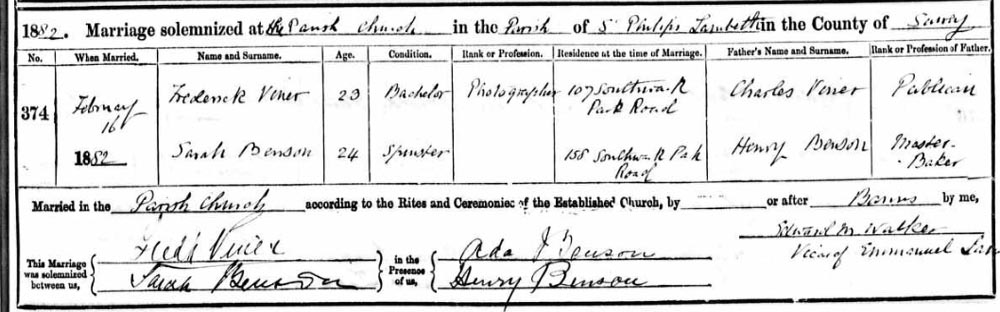 1882. Marriage solemnized at the Parish Church in the Parish of St Philips Lambeth in the County of Surrey
No. When Married. Name and Surname. Age. Condition. Rank or Profession. Residence at the time of Marriage. Father's Name and Surname. Rank or Profession of Father.
374 February 16 1882 Frederick Viner 23 Bachelor Photographer 107 Southwark Park Road Charles Viner Publican
Sarah Benson 24 Spinster 158 Southwark Park Road Henry Benson Master Baker
Married in the Parish Church according to the Rites and Ceremonies of the Established Church, by or after Banns by me,
Edward M. Walker
Vicar of Emmanuel
This Marriage was solemnized between us, Fredk Viner in the Presence of us, Ada J Benson
Sarah Benson Henry Benson